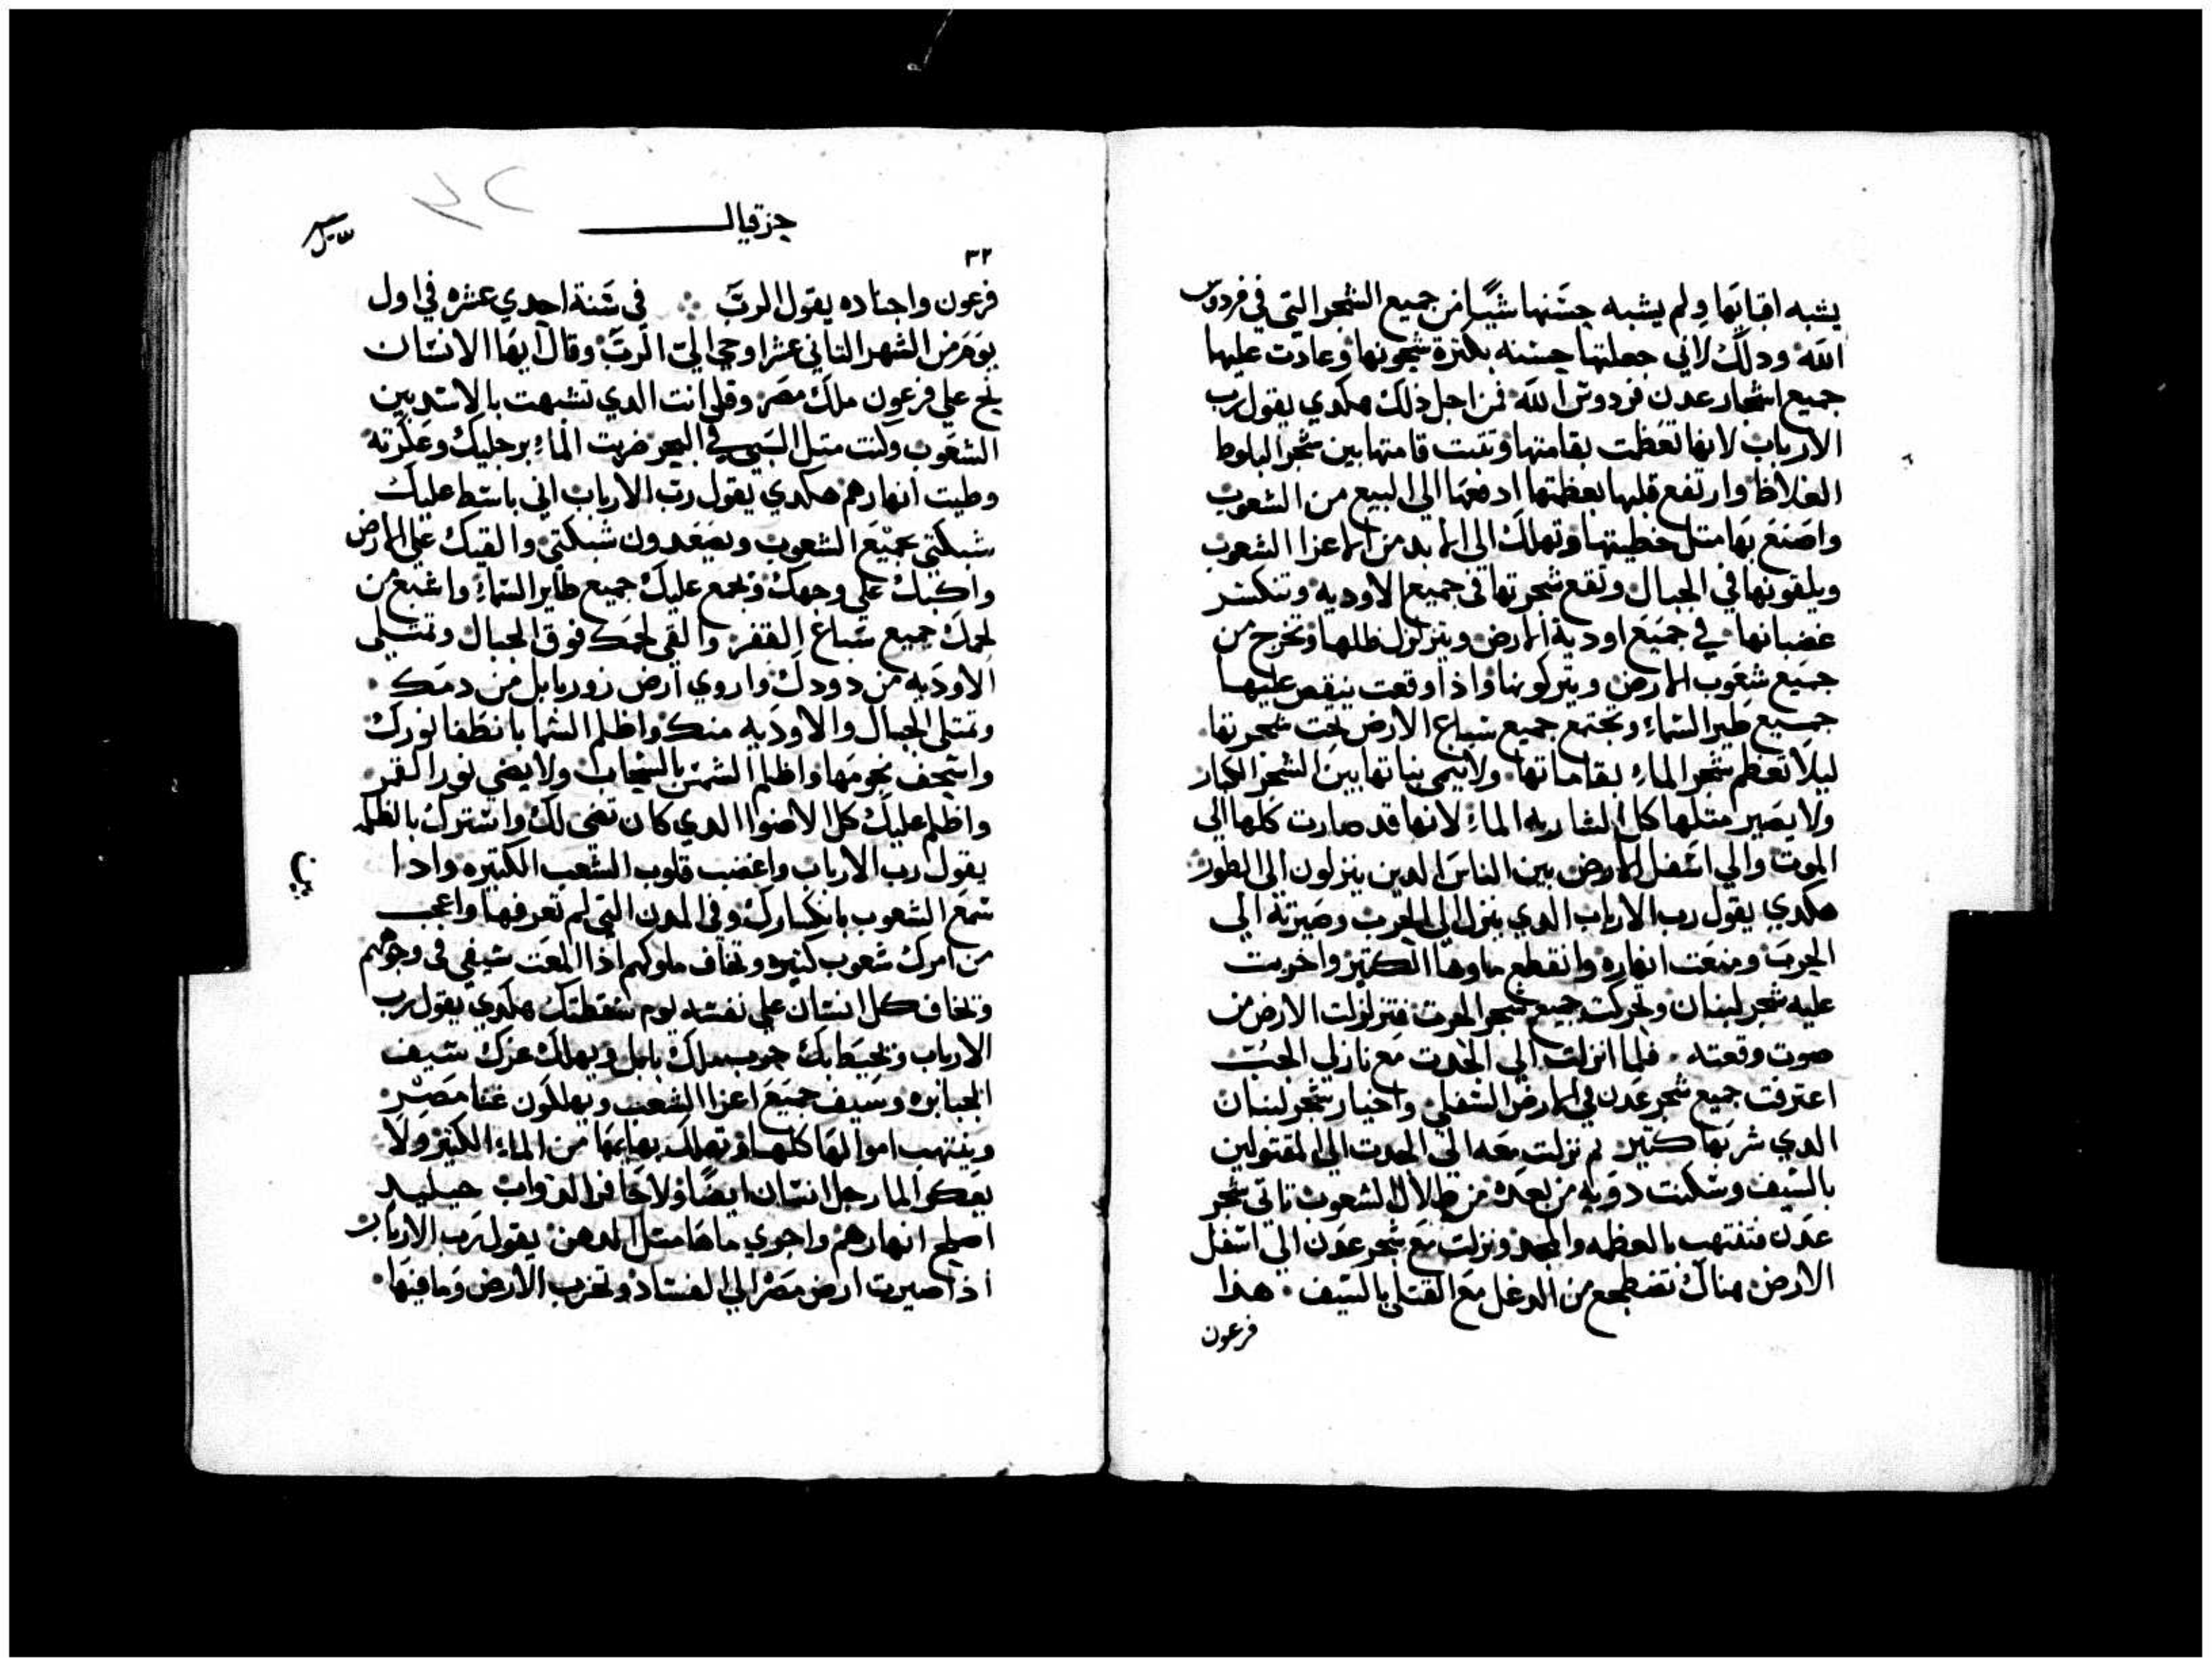 يشبه افنانها ولم يشبه حسنها شيًا من جميع الشجر التي في فردوس
الله ودلك لاني جعلتها حسنه بكثرة شجونها وعادت عليها
جميع اشجار عدن فردوس الله فمن اجل ذلك هكدي يقول رب
الارباب لانها تعظت بقامتها وتقت قامتها بين شجر البلوط
الغلاظ وارتفع قلبها بعظمتها ادفعها الي السبع من الشعوب
واصنع بها متل خطيتها وتهلك الي الابد من الاعزا الشعوب
ويلقونها في الجبال وتقع شجرتها في جميع الاوديه وتنكسر
غضبانها في جميع اودية الارض ويتزلزل ظلها وتخرج من
جميع شعوب الارض ويتركونها واذا وقعت ينقص عليها
جميع طير السماء وتجتمع جميع سباع الارض تحت شجرتها
ليلا تعظم شجر الماء بقاماتها ولا ينمي نباتها بين الشجر الكبار
ولا يصير متلها كل الشاربه الماء لانها قد صارت كلها الي
الموت والي اسفل الارض بين الناس الدين ينزلون الي الطور
هكدي يقول رب الارباب الدي ينزل الي الحرب وصيرته الي
الحرب ومنعت انهاره وانقطع ماوها الكتير واخربت
عليه شجر لبنان وتحركت جميع شجر الحرث فتزلزلت الارض من
صوت وقعته فلما انزلت الي الحدث مع نازلي الجب
اعترفت جميع شجر عدن في الارض السفلي واخيار شجر لبنان
الدي شربها كتير ثم نزلت معه الي الحدث الي المقتولين
بالسيف وسكنت دويه من بعده من ظلال الشعوب تاتي شجر
عدن فتنتهب بالعظمه والمجد ونزلت مع شجر عدن الي اسفل
الارض هناك تضطجع من الدغل مع القتلي بالسيف هذا
فرعون
حزقيال
٣٢
فرعون واجناده يقول الرب في سنة احدي عشره في اول
يوم من الشهر التاني عشر اوحي الي الرب وقال ايها الانسان
نح علي فرعون ملك مصر وقل انت الدي تشبهت بالاسد بين
الشعوب وكنت متل التنين في البحر ضربت الماء برجليك وعكرته
وطيت انهارهم هكدي يقول رب الارباب اني باسط عليك
شبكتي بجميع الشعوب ويصعدون شبكتي والقيك علي الارض
واكبك علي وجهك وتجمع عليك جميع طاير السماء واشبع من
لحمك جميع سباع القفر والقي لحمك فوق الجبال وتمتلي
الاوديه من دودك واروي ارض زوربابل من دمك
وتمتلي الجبال والاوديه منك واظلم السما بانطفا نورك
واسجف نجومها واظلم الشمس بالسحاب ولا يضي نور القمر
واظلم عليك كل الاضوا الدي كان تضي لك واسترك بالظلمه
يقول رب الارباب واغضب قلوب الشعب الكتيره وادا
سمع الشعوب بانكسارك وفي المدن التي لم تعرفها واعجب
من امرك شعوب كتيره وتخاف ملوكهم اذا المعت سيفي في وجوههم
وتخاف كل انسان علي نفسه يوم سقطتك هكدي يقول رب
الارباب ويحيط بك حرب ملك بابل ويهلك عزك سيف
الجبابره وسيف جميع اعزا الشعب ويهلكون غنا مصر
وينتهب اموالها كلها وتهلك بهايمها من الماء الكتير ولا
يعكر الما رجل انسان ايضًا ولا حافر الدواب حينيد
اصلح انهارهم واجري ماها متل الدهن يقول رب الارباب
اذا صيرت ارض مصر الي الفساد وتخرب الارض وما فيها